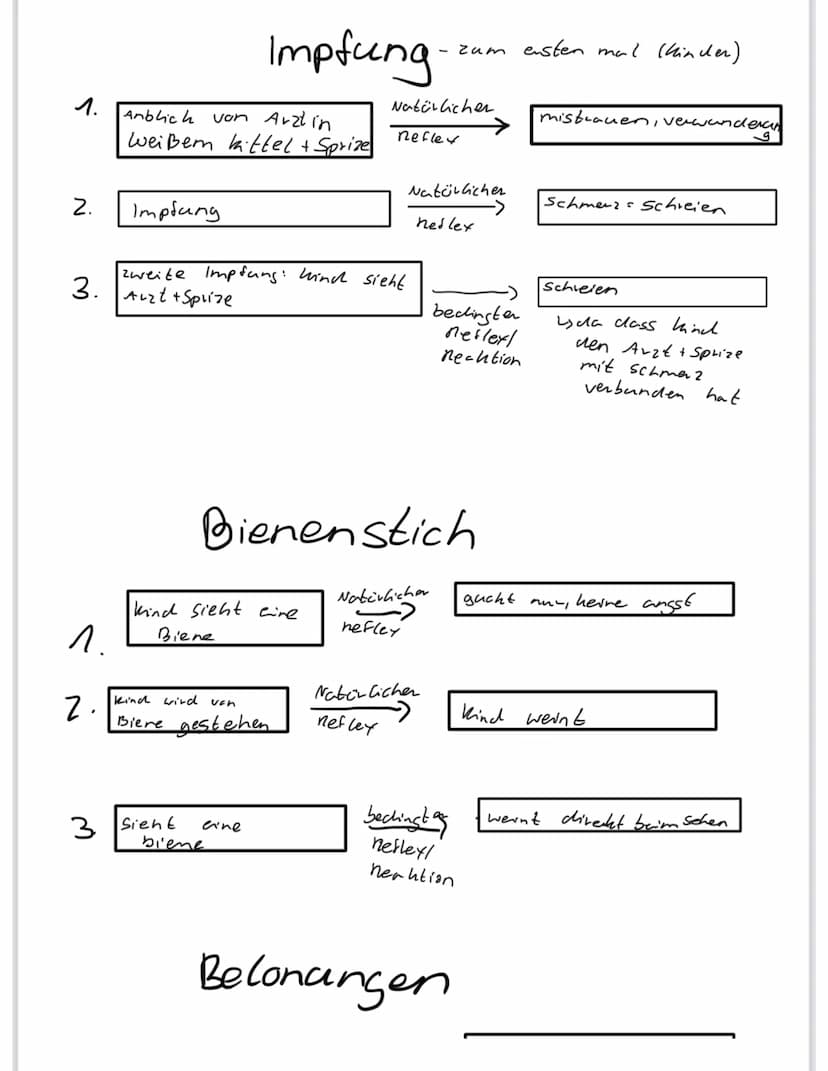 Impfung - zum ersten mal (kinder)
1. Anblick von Arzt in
weißem kittel + Sprize
Natürlicher
Reflex
misbrauen, verwunderung
2. Impfung
Natürlicher
Reflex
Schmerz = Schreien
3. zweite Impfung: kind sieht
Arzt + Sprize
bedingter
Reflex/
Reaktion
Schreien
↳ da dass kind
den Arzt + Sprize
mit Schmerz
verbunden hat
Bienenstich
1. kind sieht eine
Biene
Natürlicher
Reflex
guckt nur, keine angst
2. kind wird von
Biene gestehen
Natürlicher
Reflex
kind weint
3 Sieht eine
biene
bedingter
Reflex/
Reaktion
weint direkt beim sehen
Belonungen